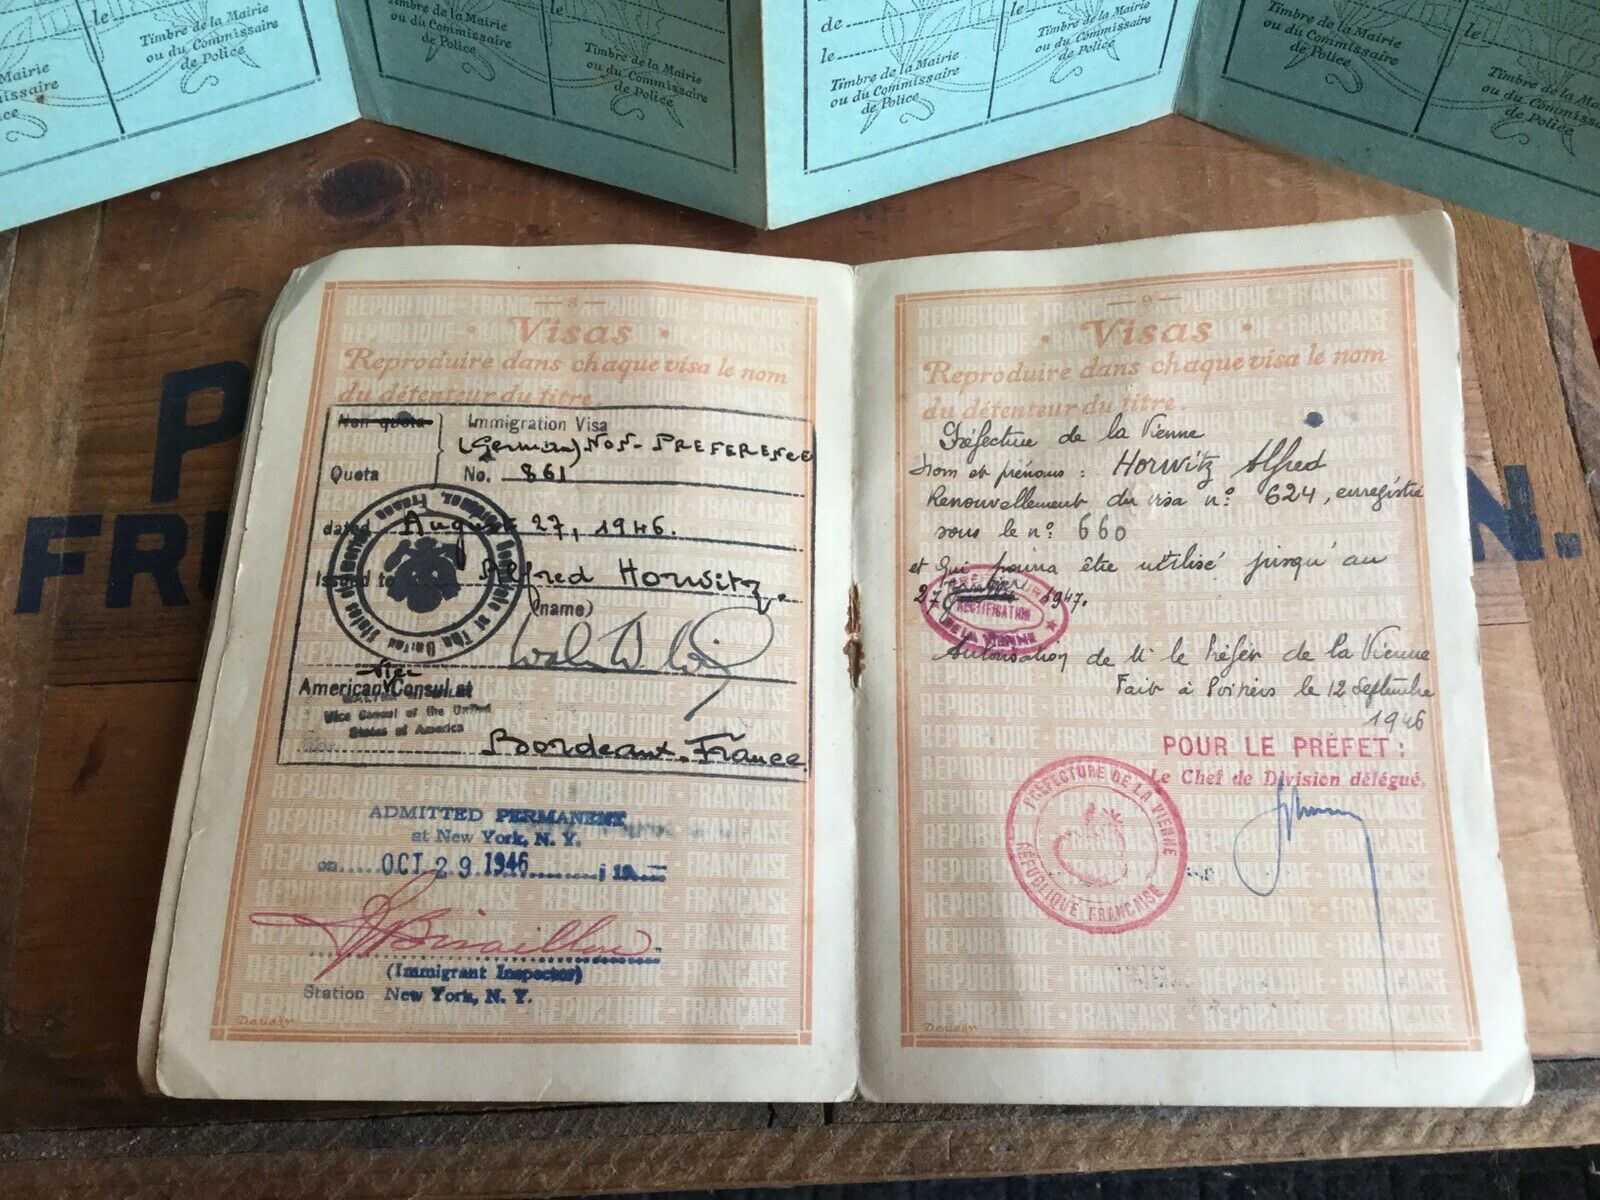 Timbre de la Mairie
ou du Commissaire
de Police
le
Timbre de la Mairie
ou du Commissaire
de Police
de
le
Timbre de la Mairie
ou du Commissaire
de Police
le
Timbre de la Mairie
ou du Commissaire
de Police
le
Timbre de la Mairie
ou du Commissaire
de Police
le
Timbre de la Ma
ou du Commissaire
de Police
— 8 —
Visas
Reproduire dans chaque visa le nom
du détenteur du titre.
Non quota
Immigration Visa
(German) NON-PREFERENCE
Quota
No. 861
dated August 27, 1946.
Issued to Alfred Horwitz.
(name)
Vice
American Consul at
Vice Consul of the United
States of America
Bordeaux. France
ADMITTED PERMANENT
at New York, N. Y.
on OCT 29 1946 19
(Immigrant Inspector)
Station New York, N. Y.
— 9 —
Visas
Reproduire dans chaque visa le nom
du détenteur du titre.
Préfecture de la Vienne
Nom et prénoms : Horwitz Alfred
Renouvellement du visa n° 624, enregistré
sous le n° 660
et qui pourra être utilisé jusqu'au
27 1947.
RECTIFICATION
DE LA VIENNE
Autorisation de Mr le Préfet de la Vienne
Fait à Poitiers le 12 Septembre
1946
POUR LE PRÉFET :
Le Chef de Division délégué,
PRÉFECTURE DE LA VIENNE
RÉPUBLIQUE FRANÇAISE